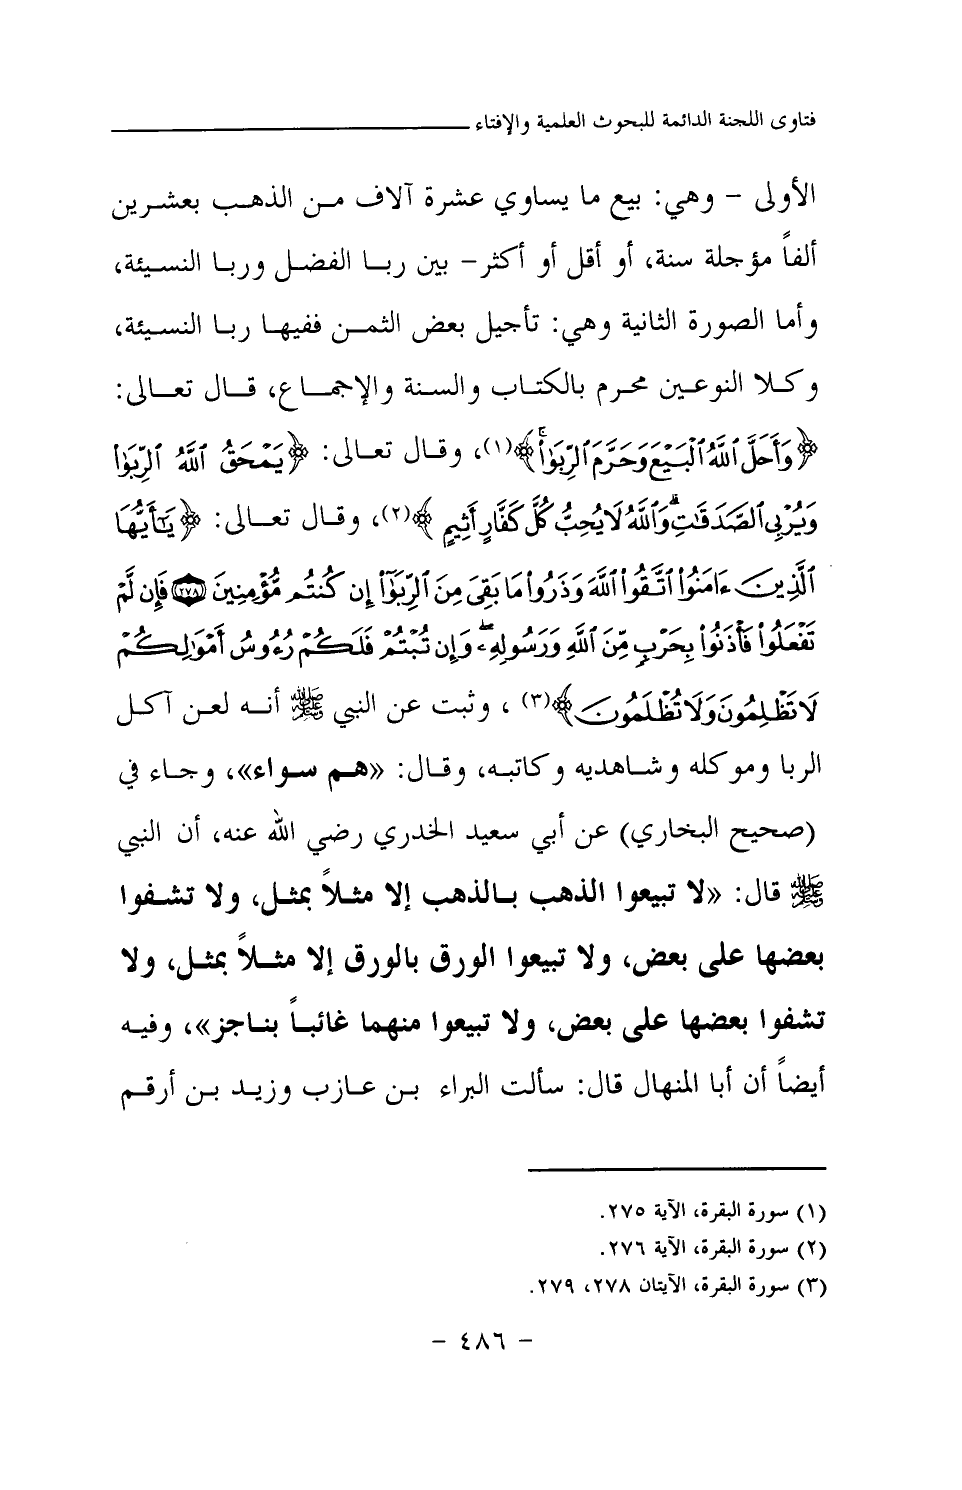 فتاوى اللجنة الدائمة للبحوث العلمية والإفتاء
الأولى - وهي: بيع ما يساوي عشرة آلاف من الذهب بعشرين
ألفاً مؤجلة سنة، أو أقل أو أكثر- بين ربا الفضل وربا النسيئة،
وأما الصورة الثانية وهي: تأجيل بعض الثمن ففيها ربا النسيئة،
وكلا النوعين محرم بالكتاب والسنة والإجماع، قال تعالى:
﴿وَأَحَلَّ ٱللَّهُ ٱلۡبَيۡعَ وَحَرَّمَ ٱلرِّبَوٰاْۚ﴾(١)، وقال تعالى: ﴿يَمۡحَقُ ٱللَّهُ ٱلرِّبَوٰاْ
وَيُرۡبِي ٱلصَّدَقَٰتِۗ وَٱللَّهُ لَا يُحِبُّ كُلَّ كَفَّارٍ أَثِيمٍ﴾(٢)، وقال تعالى: ﴿يَٰٓأَيُّهَا
ٱلَّذِينَ ءَامَنُواْ ٱتَّقُواْ ٱللَّهَ وَذَرُواْ مَا بَقِيَ مِنَ ٱلرِّبَوٰٓاْ إِن كُنتُم مُّؤۡمِنِينَ ٢٧٨ فَإِن لَّمۡ
تَفۡعَلُواْ فَأۡذَنُواْ بِحَرۡبٖ مِّنَ ٱللَّهِ وَرَسُولِهِۦۖ وَإِن تُبۡتُمۡ فَلَكُمۡ رُءُوسُ أَمۡوَٰلِكُمۡ
لَا تَظۡلِمُونَ وَلَا تُظۡلَمُونَ﴾(٣)، وثبت عن النبي ﷺ أنه لعن آكل
الربا وموكله وشاهديه وكاتبه، وقال: «هم سواء»، وجاء في
(صحيح البخاري) عن أبي سعيد الخدري رضي الله عنه، أن النبي
ﷺ قال: «لا تبيعوا الذهب بالذهب إلا مثلاً بمثل، ولا تشفوا
بعضها على بعض، ولا تبيعوا الورق بالورق إلا مثلاً بمثل، ولا
تشفوا بعضها على بعض، ولا تبيعوا منهما غائباً بناجز»، وفيه
أيضاً أن أبا المنهال قال: سألت البراء بن عازب وزيد بن أرقم
(١) سورة البقرة، الآية ٢٧٥.
(٢) سورة البقرة، الآية ٢٧٦.
(٣) سورة البقرة، الآيتان ٢٧٨، ٢٧٩.
- ٤٨٦ -